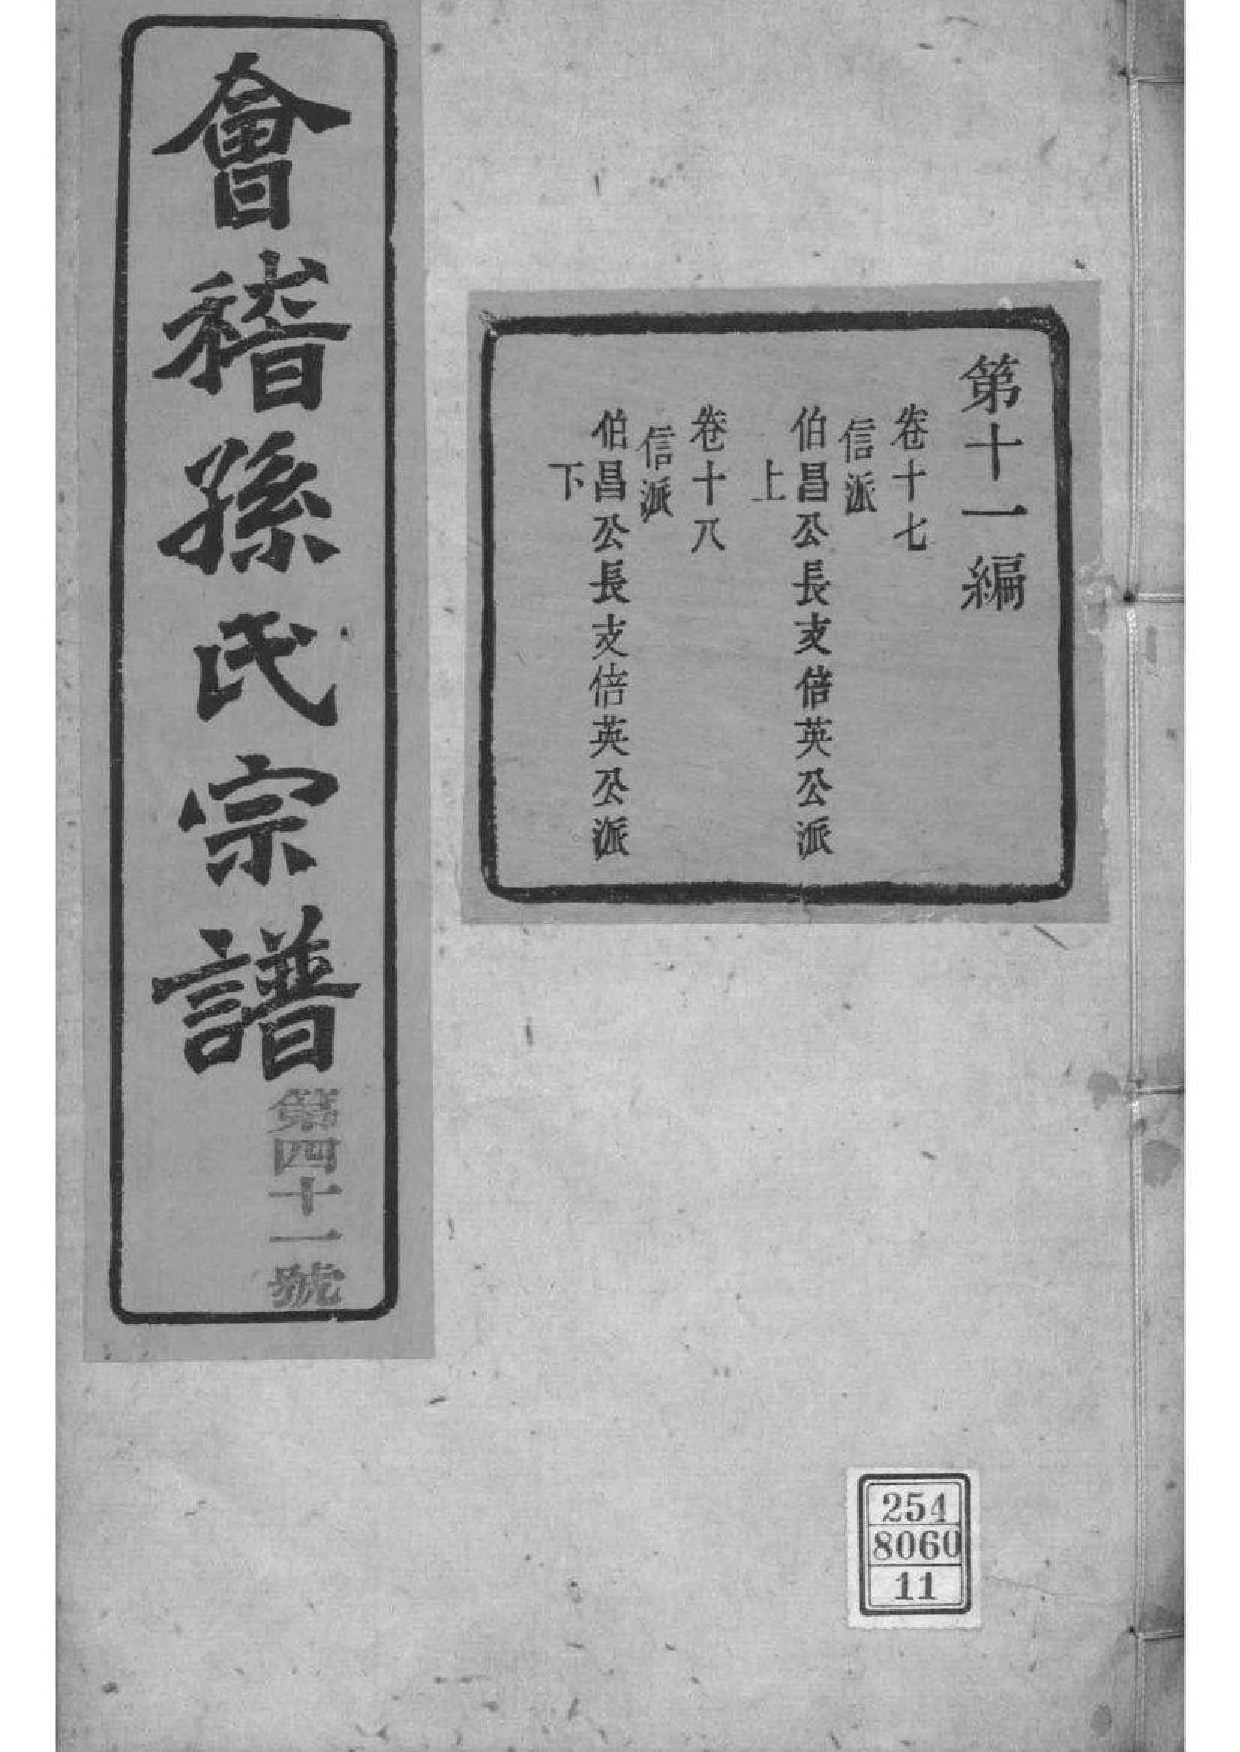 會稽孫氏宗譜
第四十一號
第十一編
卷十七
信派
伯昌公長支倍英公派
上
卷十八
信派
伯昌公長支倍英公派
下
254
8060
11